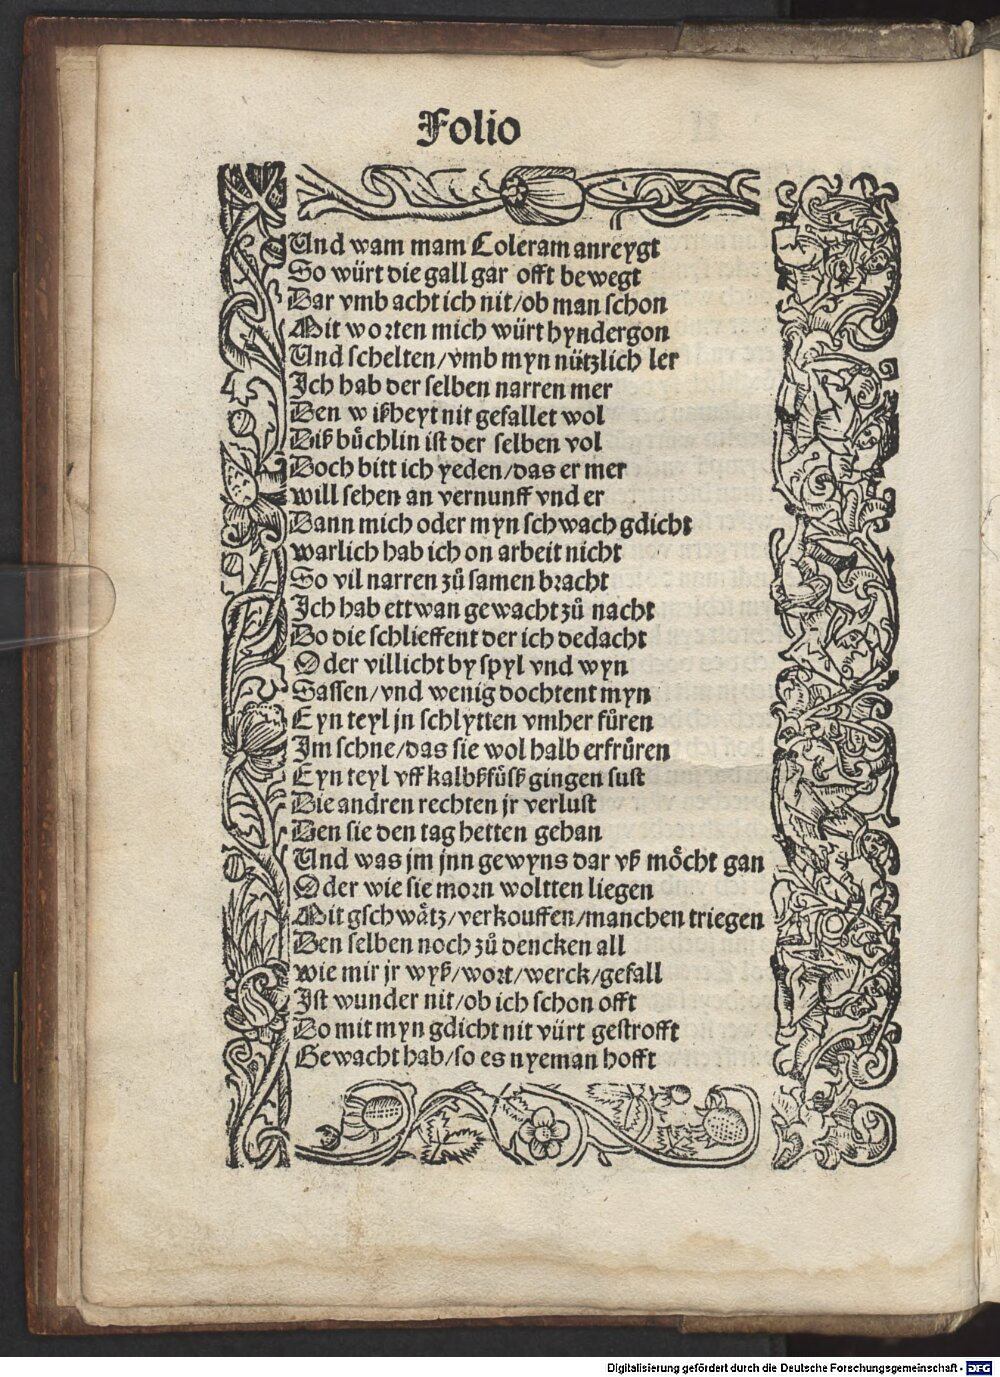 Folio
Und wam mam Coleram anreygt
So würt die gall gar offt bewegt
Dar vmb acht ich nit/ob man schon
Mit worten mich würt hyndergon
Und schelten/vmb myn nützlich ler
Ich hab der selben narren mer
Den wißheyt nit gefallet wol
Diß buͤchlin ist der selben vol
Doch bitt ich yeden/das er mer
will sehen an vernunff vnd er
Dann mich oder myn schwach gdicht
warlich hab ich on arbeit nicht
So vil narren zuͦ samen bracht
Ich hab ettwan gewacht zuͦ nacht
Do die schlieffent der ich dedacht
Oder villicht by spyl vnd wyn
Sassen/vnd wenig dochtent myn
Eyn teyl jn schlytten vmher fuͦren
Im schne/das sie wol halb erfruͦren
Eyn teyl vff kalbßfuͦß gingen sust
Die andren rechten jr verlust
Den sie den tag hetten gehan
Und was jm jnn gewyns dar vß moͤcht gan
Oder wie sie morn woltten liegen
Mit gschwaͤtz/verkouffen/manchen triegen
Den selben noch zuͦ dencken all
wie mir jr wyß/wort/werck/gefall
Ist wunder nit/ob ich schon offt
Do mit myn gdicht nit vürt gestrofft
Gewacht hab/so es nyeman hofft
Digitalisierung gefördert durch die Deutsche Forschungsgemeinschaft - DFG